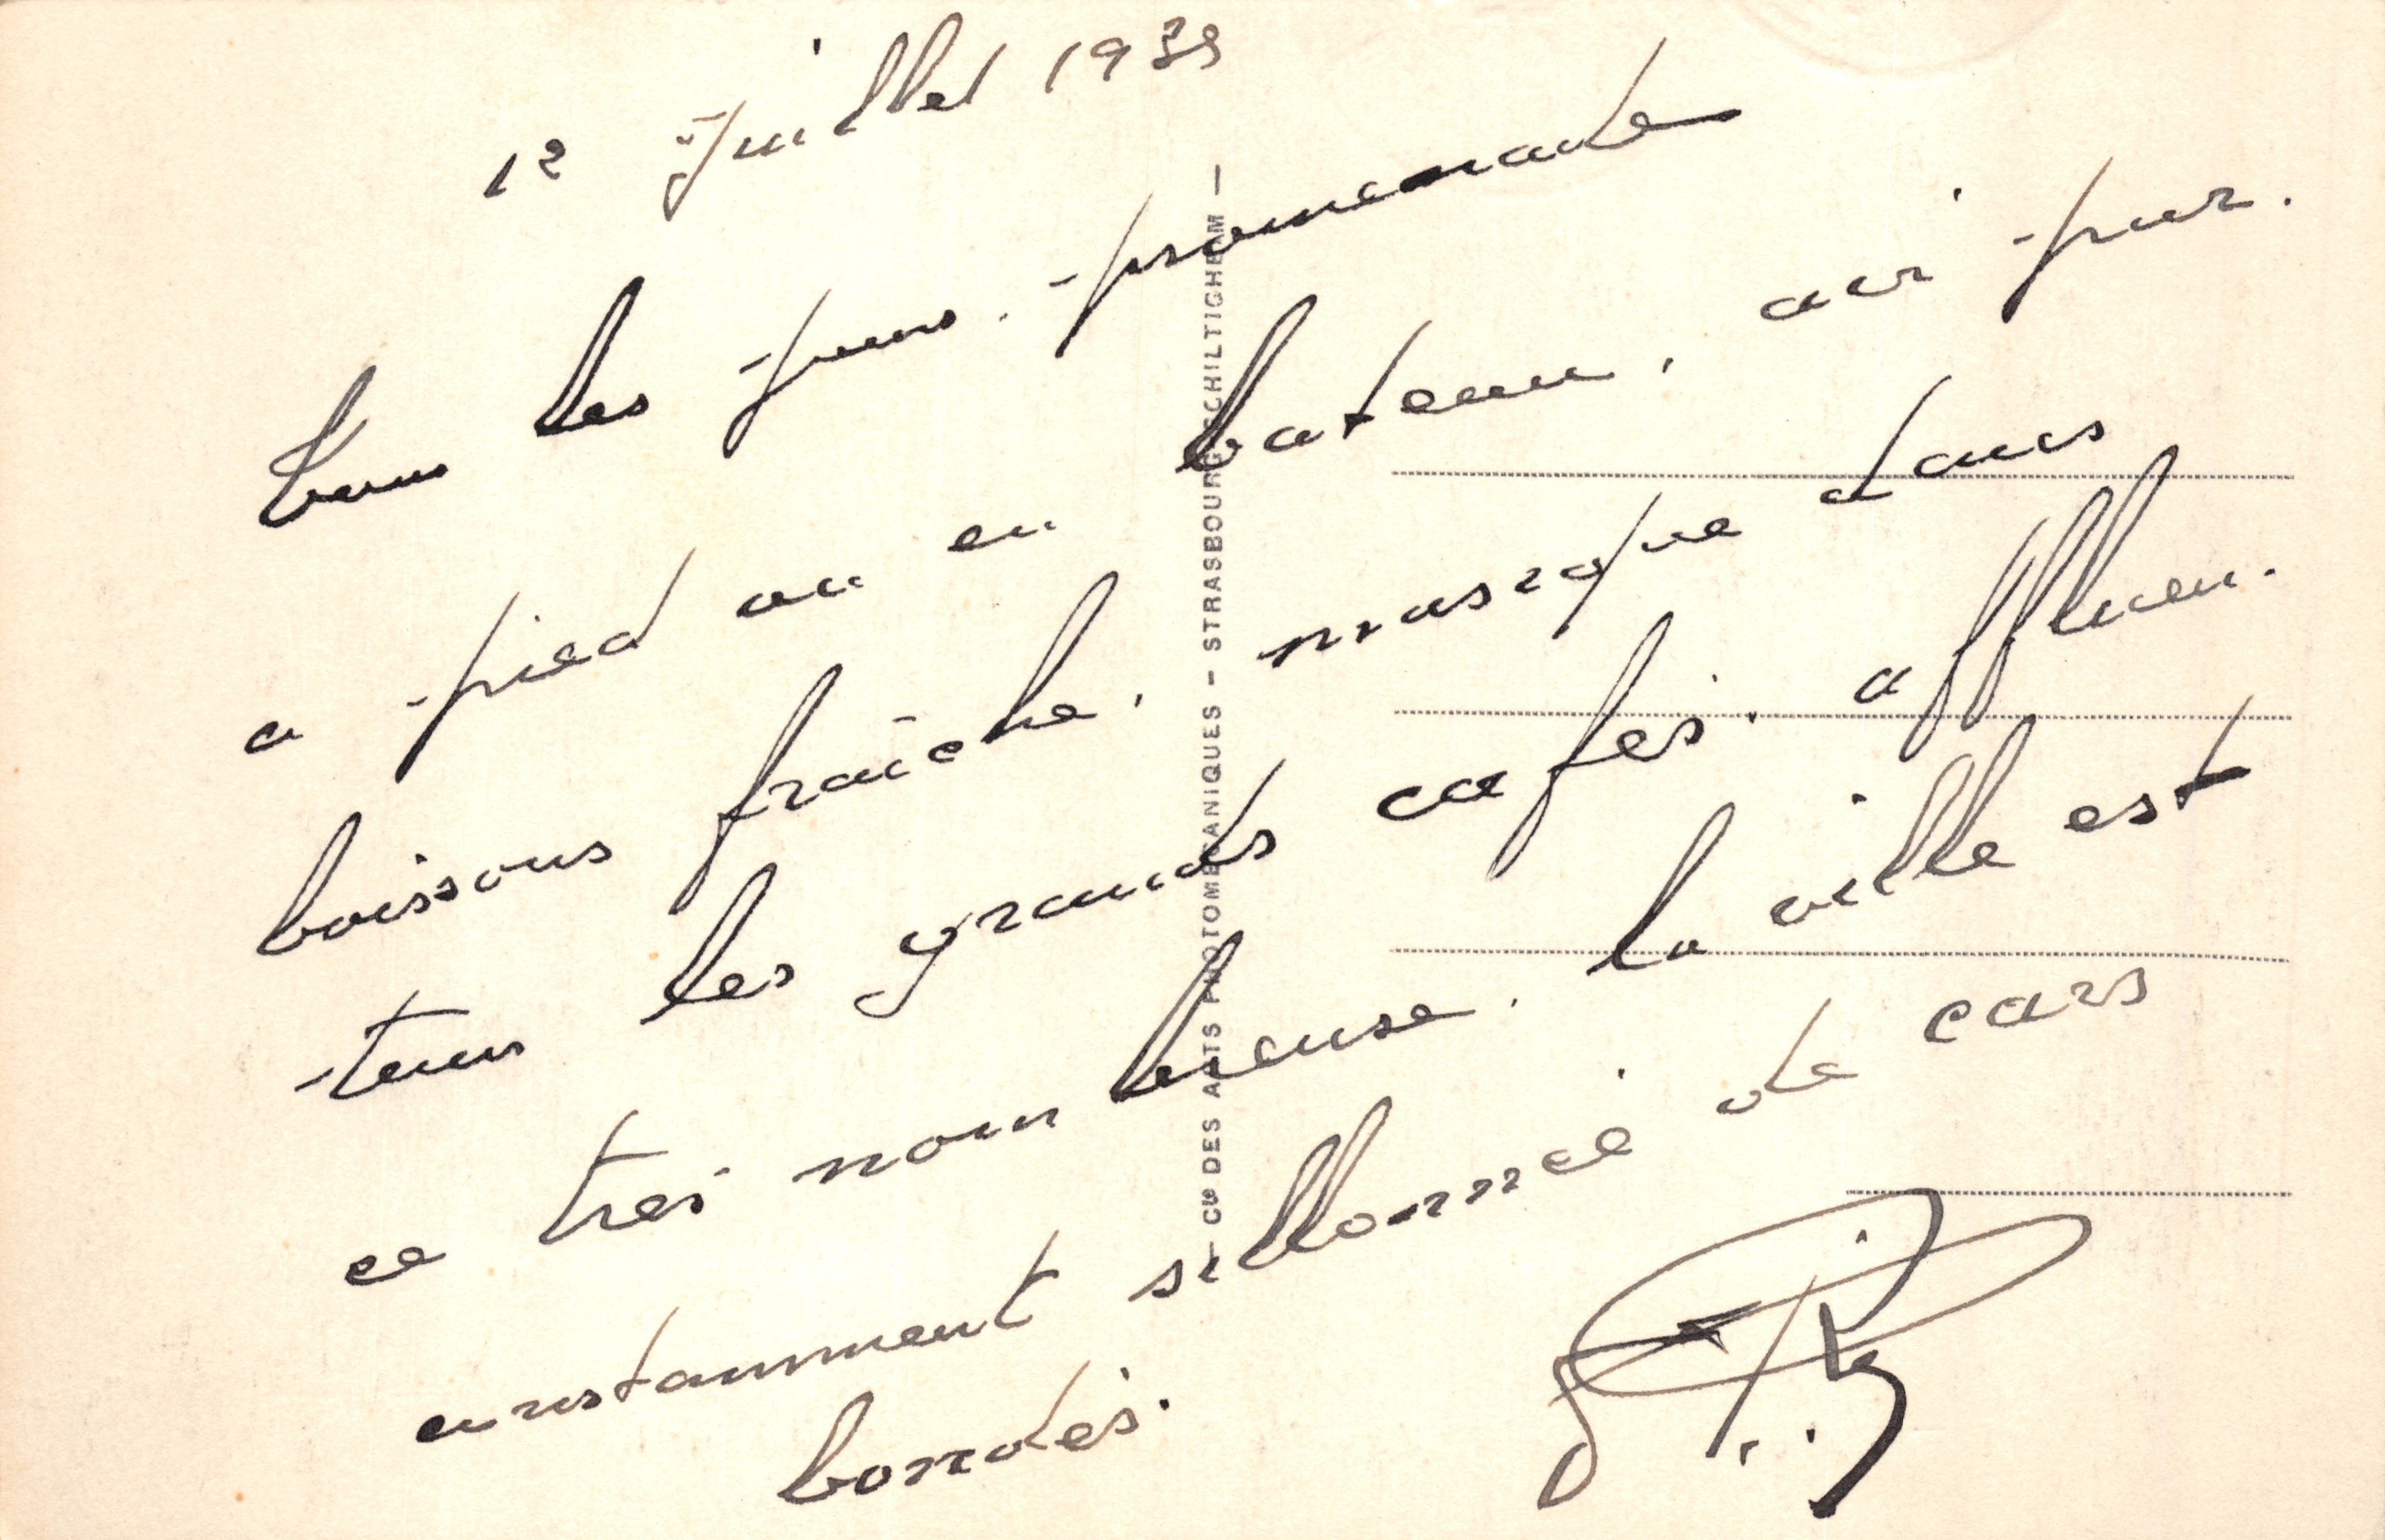 12 Juillet 1939
Tous les jours. promenade
a pied ou en bateau. air pur.
boissons fraiche. musique dans
tous les grands cafés. affluen.
ce trés nombreuse. la ville est
constamment sillonnée de cars
bondés.
— Cie DES ARTS PHOTOMECANIQUES - STRASBOURG-SCHILTIGHEIM —